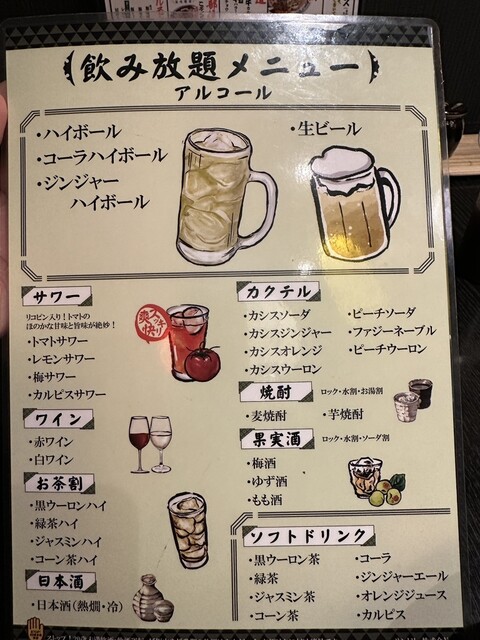 飲み放題メニュー
アルコール
・ハイボール
・コーラハイボール
・ジンジャー
ハイボール
・生ビール
サワー
リコピン入り！トマトの
ほのかな甘味と旨味が絶妙！
・トマトサワー
・レモンサワー
・梅サワー
・カルピスサワー
ワイン
・赤ワイン
・白ワイン
お茶割
・黒ウーロンハイ
・緑茶ハイ
・ジャスミンハイ
・コーン茶ハイ
日本酒
・日本酒（熱燗・冷）
カクテル
・カシスソーダ
・カシスジンジャー
・カシスオレンジ
・カシスウーロン
・ピーチソーダ
・ファジーネーブル
・ピーチウーロン
焼酎 ロック・水割・お湯割
・麦焼酎 ・芋焼酎
果実酒 ロック・水割・ソーダ割
・梅酒
・ゆず酒
・もも酒
ソフトドリンク
・黒ウーロン茶
・緑茶
・ジャスミン茶
・コーン茶
・コーラ
・ジンジャーエール
・オレンジジュース
・カルピス